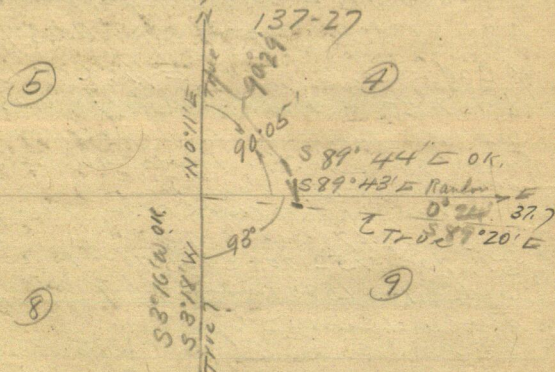 137-27
5
4
True
90°29'
N 0°11' E
90°05'
S 89° 44' E OK.
S 89° 43' E Random E
0° 24' 37.7
℄ True S 89° 20' E
93°
S 3°16' W OK
S 3°18' W
True
8
9